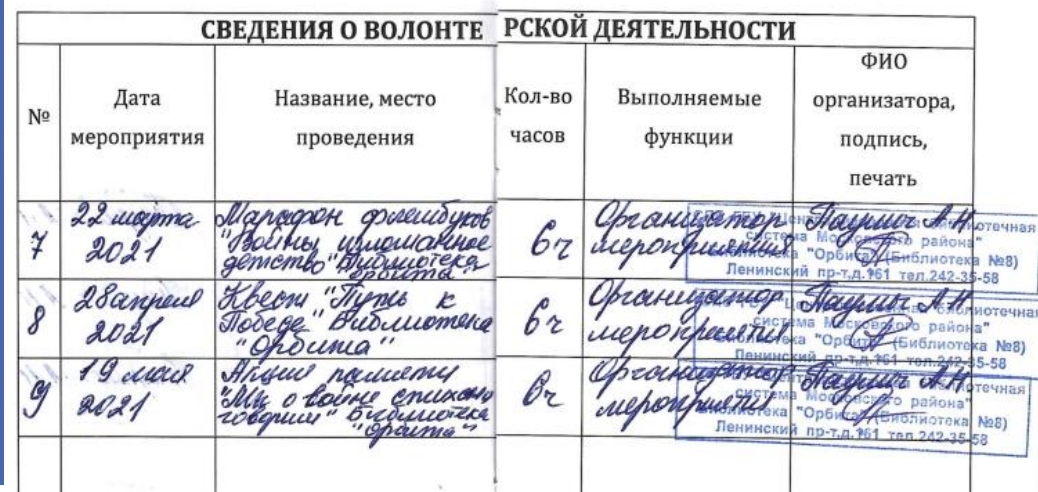 СВЕДЕНИЯ О ВОЛОНТЕРСКОЙ ДЕЯТЕЛЬНОСТИ
№
Дата
мероприятия
Название, место
проведения
Кол-во
часов
Выполняемые
функции
ФИО
организатора,
подпись,
печать
7
22 марта
2021
Марафон флешбуков
"Войны изломанное
детство" Библиотека
"Орбита"
6ч
Организатор
мероприятия
А.Н.
система Московского района"
библиотека "Орбита" (Библиотека №8)
Ленинский пр-т,д.161 тел.242-35-58
8
28 апреля
2021
Квест "Путь к
Победе" Библиотека
"Орбита"
6ч
Организатор
мероприятия
А.Н.
система Московского района"
библиотека "Орбита" (Библиотека №8)
Ленинский пр-т,д.161 тел.242-35-58
9
19 мая
2021
Акция памяти
"Мы о войне стихами
говорим" Библиотека
"Орбита"
6ч
Организатор
мероприятия
А.Н.
система Московского района"
библиотека "Орбита" (Библиотека №8)
Ленинский пр-т,д.161 тел.242-35-58